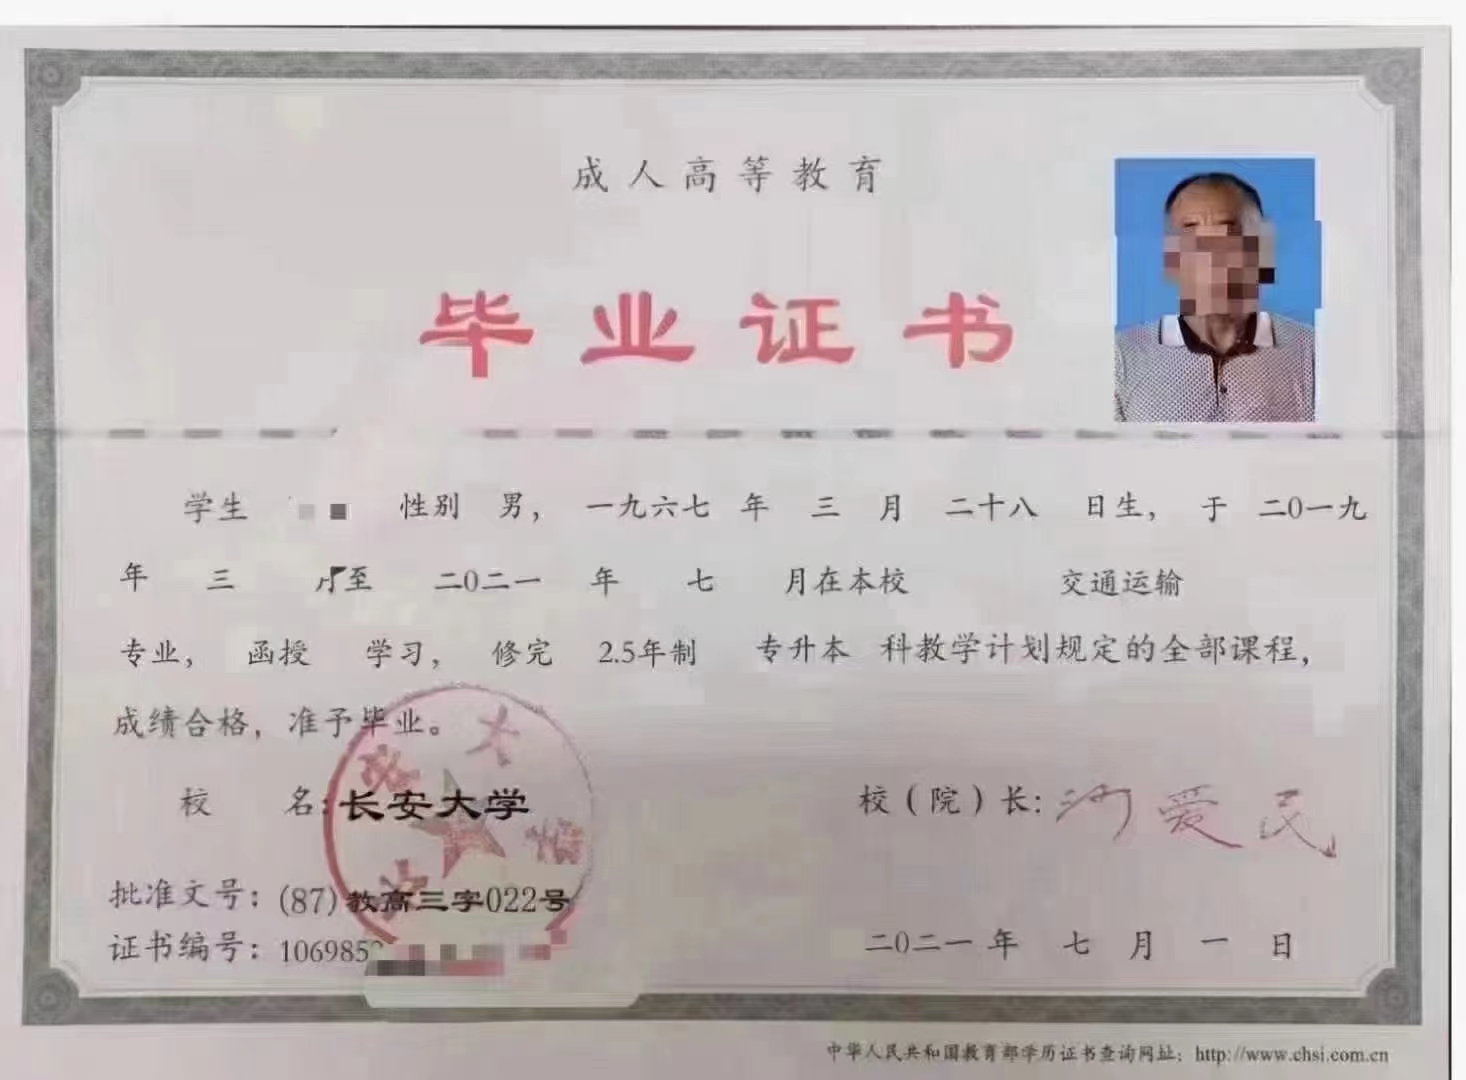 成人高等教育
毕业证书
学生 性别 男， 一九六七 年 三 月 二十八 日生， 于 二0一九
年 三 月至 二0二一 年 七 月在本校 交通运输
专业， 函授 学习， 修完 2.5年制 专升本 科教学计划规定的全部课程，
成绩合格，准予毕业。
校 名：长安大学
校（院）长：
爱民
批准文号：(87)教高三字022号
证书编号：1069852
二0二一 年 七 月 一 日
中华人民共和国教育部学历证书查询网址：http://www.chsi.com.cn